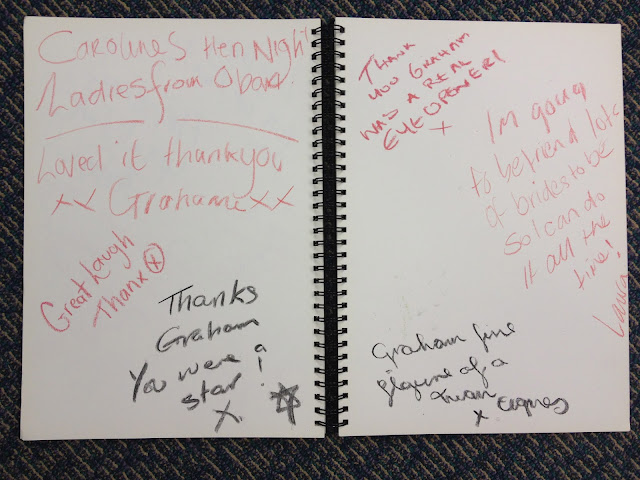 Caroline's Hen Night
Ladies from Oban.
Loved it thankyou
xx Graham xx
Great Laugh
Thanx
Thanks
Graham
You were a
star!
x.
THANK
YOU GRAHAM
WAS A REAL
EYE OPENER!
x
I'm going
to befriend lots
of brides to be
so I can do
it all the
time!
Graham fine
figure of a
man
x